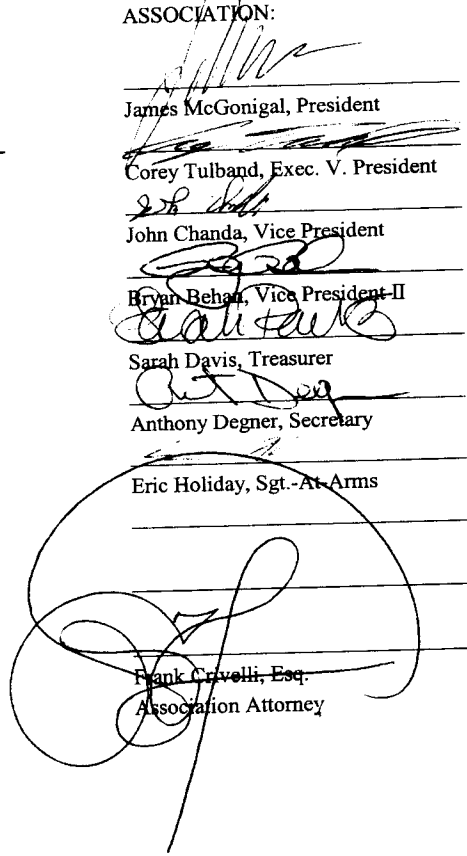 ASSOCIATION:
James McGonigal, President
Corey Tulband, Exec. V. President
John Chanda, Vice President
Bryan Behan, Vice President II
Sarah Davis
Sarah Davis, Treasurer
Anthony Degner, Secretary
Eric Holiday, Sgt.-At-Arms
Frank Crivelli, Esq.
Association Attorney